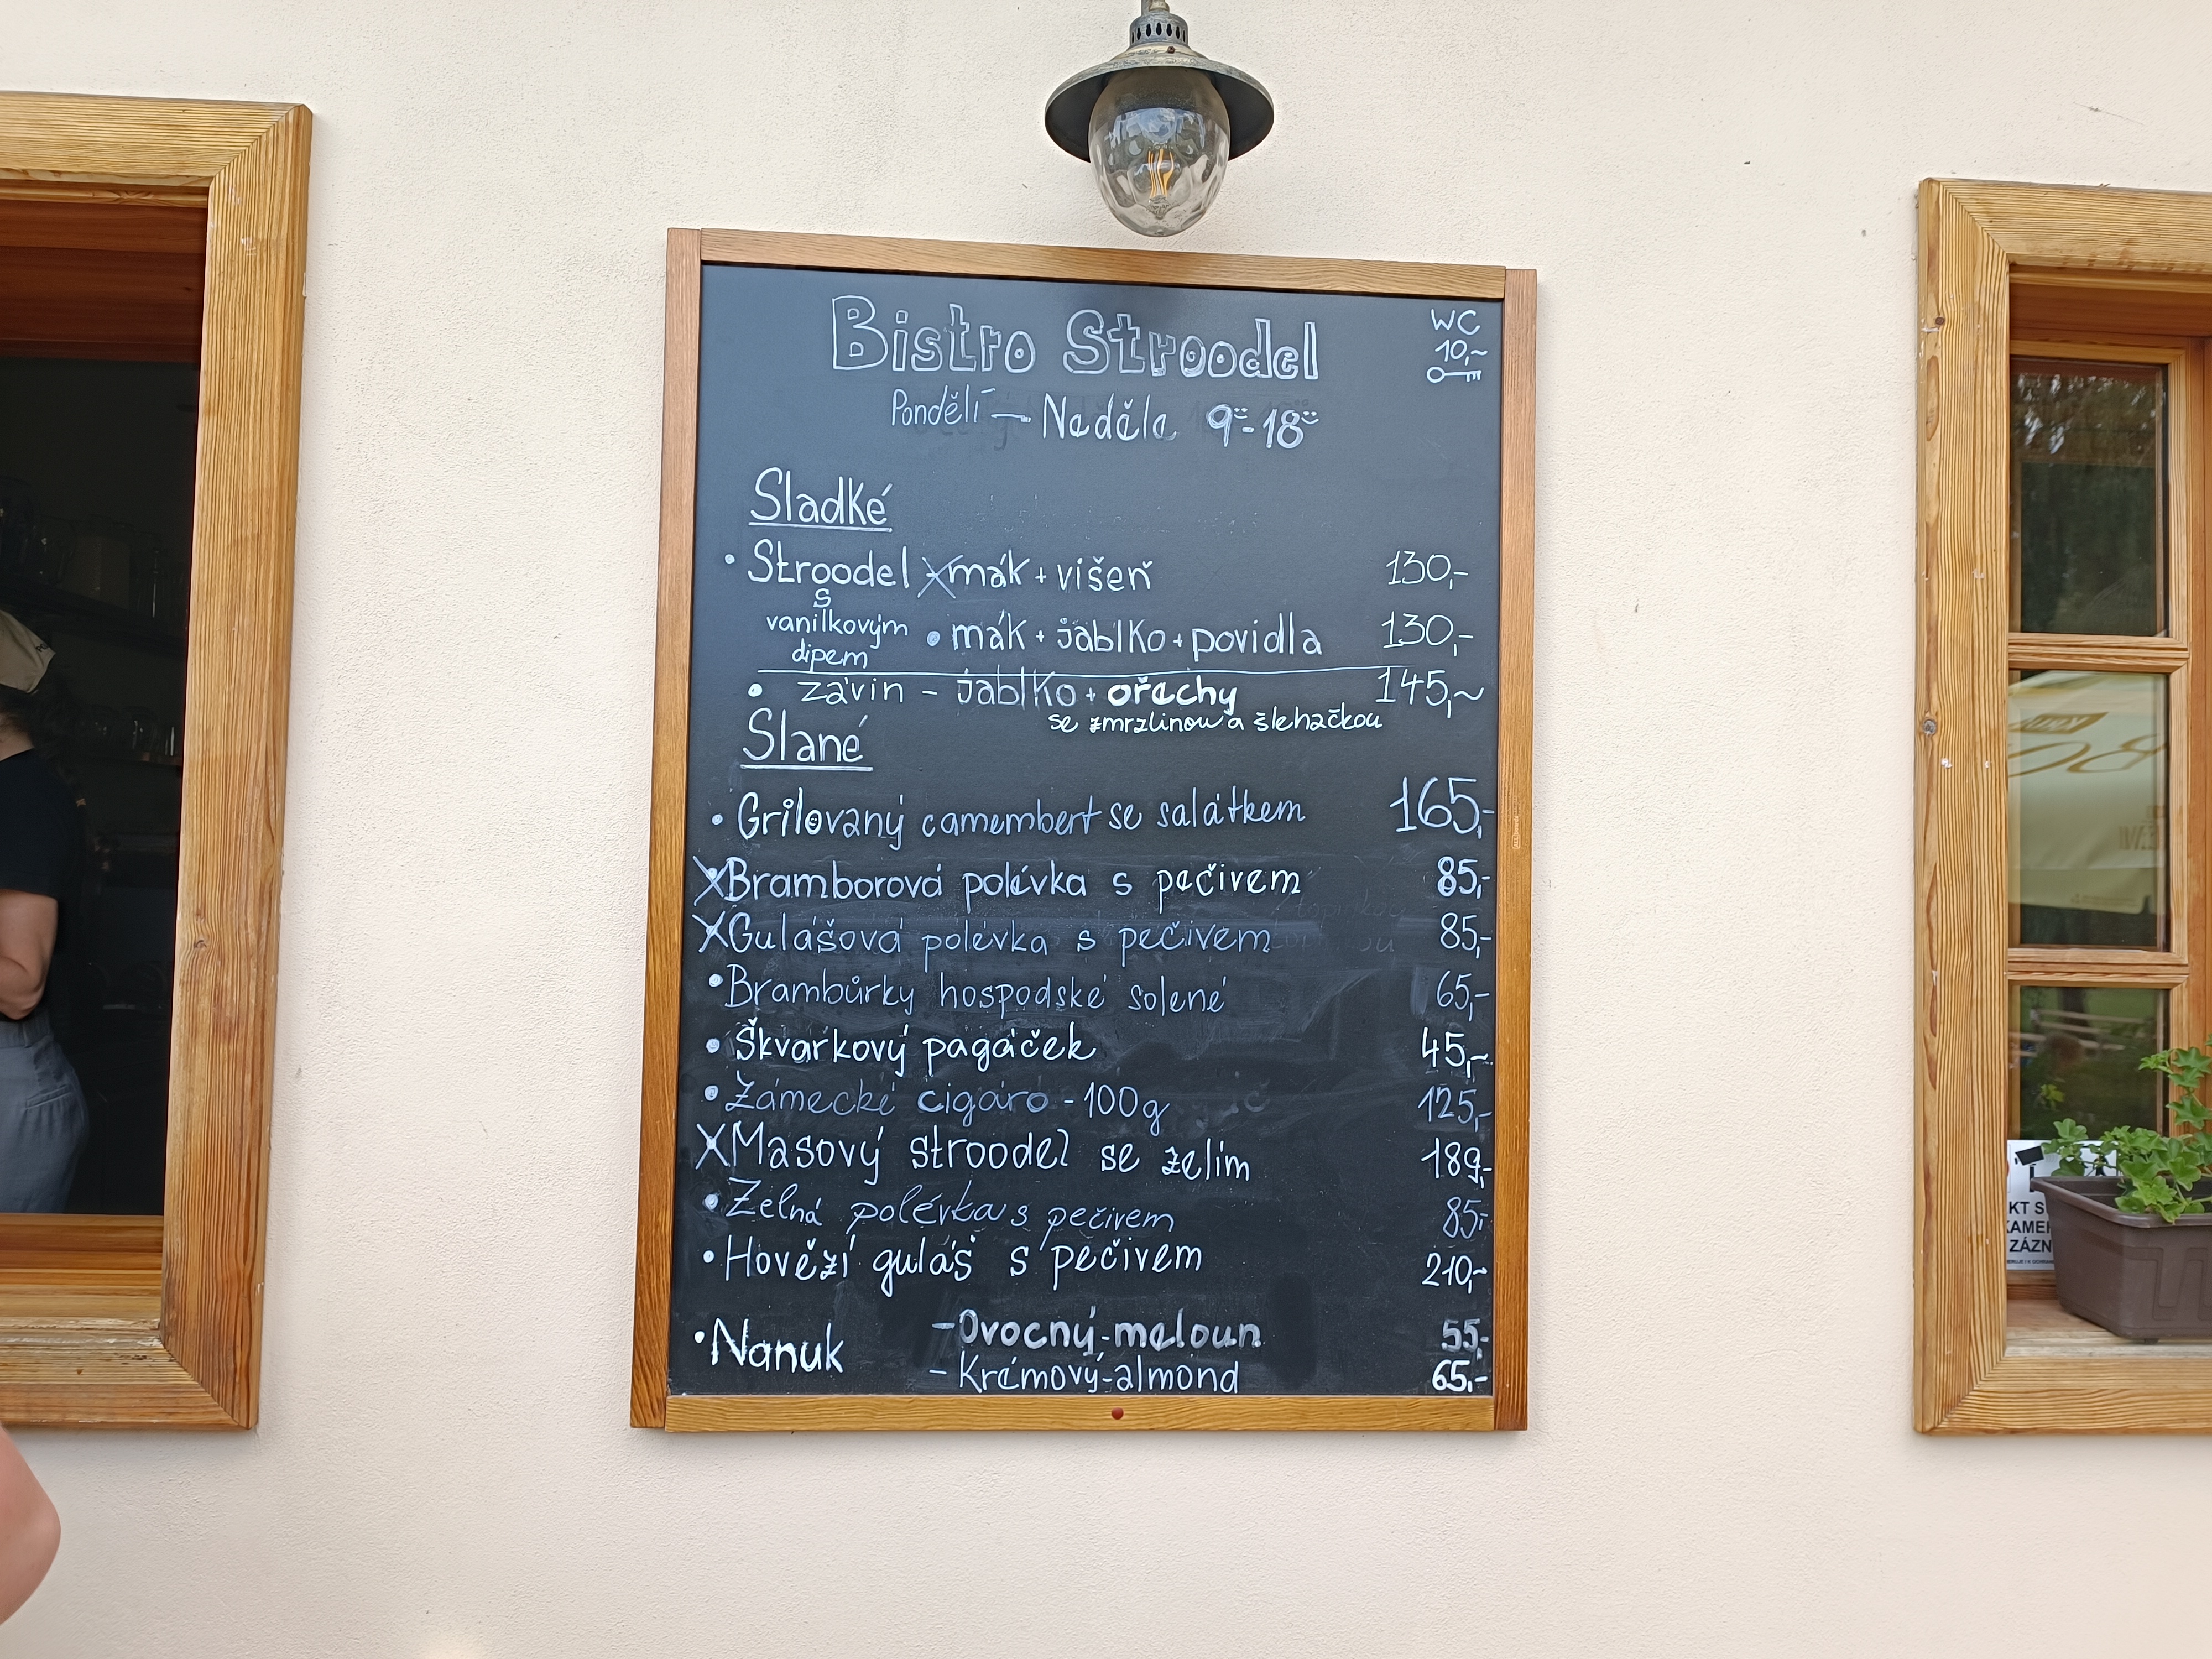 Bistro Stroodel
WC
10,-
Pondělí — Neděle 9⁰⁰-18⁰⁰
Sladké
• Stroodel X mák + višeň 130,-
s
vanilkovým
dipem
• mák + jablko + povidla 130,-
• závin - jablko + ořechy 145,-
se zmrzlinou a šlehačkou
Slané
• Grilovaný camembert se salátkem 165,-
X Bramborová polévka s pečivem 85,-
X Gulášová polévka s pečivem 85,-
• Brambůrky hospodské solené 65,-
• Škvarkový pagáček 45,-
• Zámecké cigáro - 100g 125,-
X Masový stroodel se zelím 189,-
• Zelná polévka s pečivem 85,-
• Hovězí guláš s pečivem 210,-
• Nanuk - Ovocný-meloun 55,-
- Krémový-almond 65,-